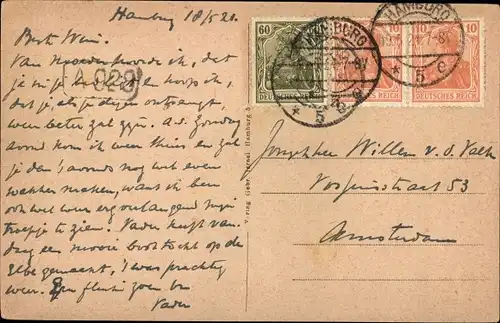 Hamburg 18/5 20.
Best Wim.
Van Moeder hoorde ik, dat
je
hoop ik,
dat je, als je dezen ontvangt,
weer beter zal zijn. a.s. Zondag
avond kom ik weer thuis en zal
je dan 's avonds nog wel even
wakker maken, want ik ben
ook wel weer erg verlangend mijn
troepje te zien. Vader heeft van-
dag een mooie boottocht op de
Elbe gemaakt, 't was prachtig
weer. Een flinke zoen v.
Vader
Verlag Gebr. Hamburg 3
60
DEUTSCHES REICH
10
10
DEUTSCHES REICH
HAMBURG
* 5 e
HAMBURG
* 5 e
Jonghheer Willem v. d. Valk
Vossiusstraat 53
Amsterdam